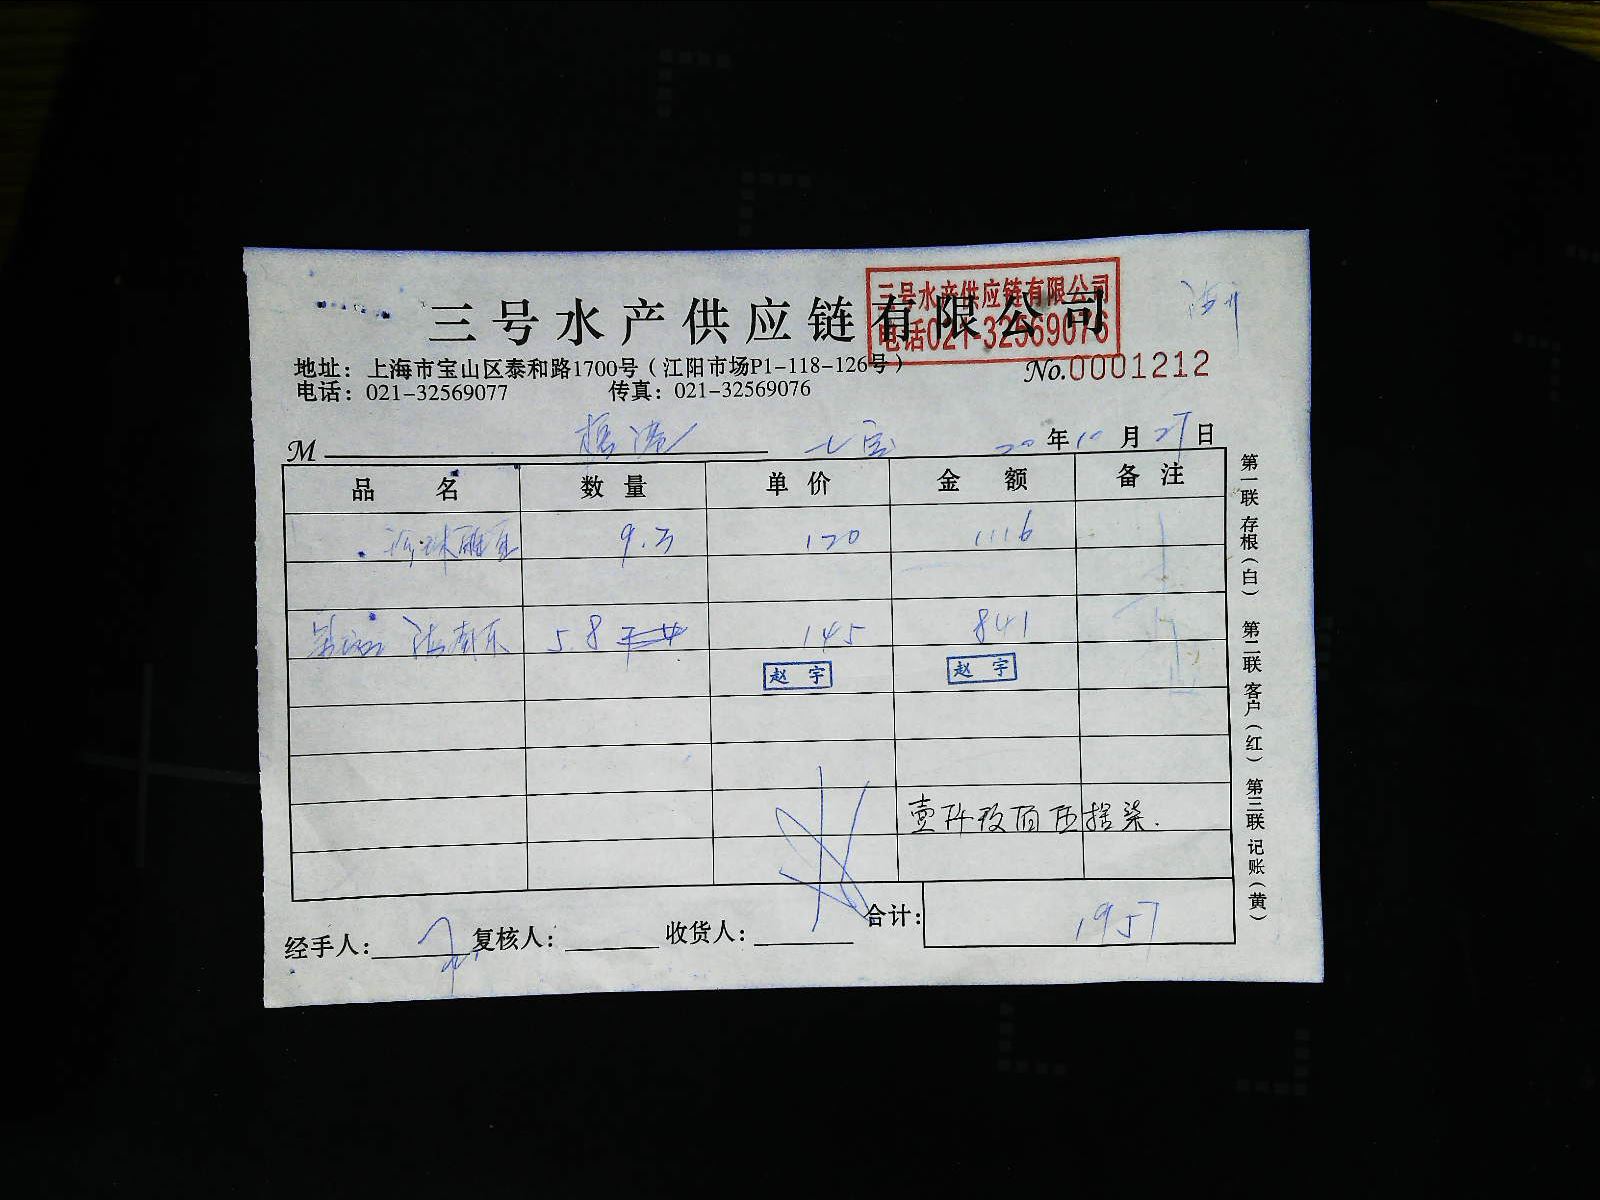 三号水产供应链有限公司
三号水产供应链有限公司
电话021-32569076
地址：上海市宝山区泰和路1700号（江阳市场P1-118-126号）
No.0001212
电话：021-32569077 传真：021-32569076
M 七宝 20年10月27日
品 名 数 量 单 价 金 额 备 注
9.3 120 1116
5.8 145 841
赵 宇 赵 宇
壹仟玖佰伍拾柒.
合计： 1957
经手人： 复核人： 收货人：
第一联 存根（白） 第二联 客户（红） 第三联 记账（黄）